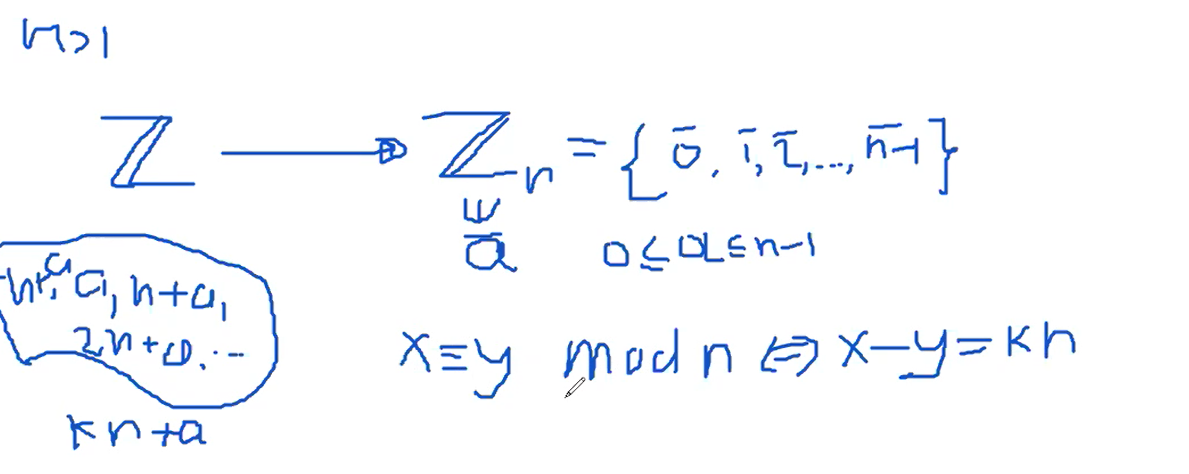 n>1
ℤ → ℤₙ = { 0̅, 1̅, 2̅, ..., n̅-̅1̅ }
∈
a̅ 0 ≤ a ≤ n-1
-n+a, a, n+a,
2n+a, ...
x ≡ y mod n ⇔ x-y = kn
kn+a